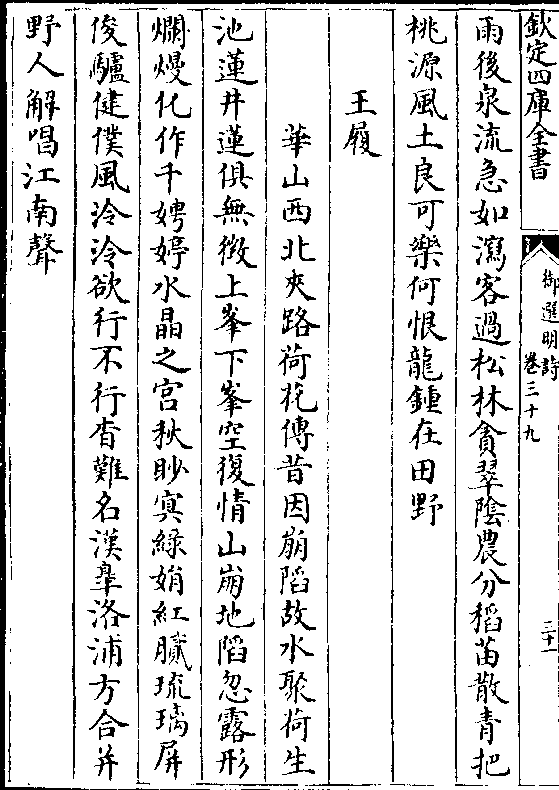 欽定四庫全書
御選明詩
卷三十九
二十一
雨後泉流急如瀉客過松林貪翠陰農分稻苗散青把
桃源風土良可樂何恨龍鍾在田野
王履
華山西北夾路荷花傳昔因崩陷故水聚荷生
池蓮井蓮俱無徴上峯下峯空復情山崩地陷忽露形
爛熳化作千娉婷水晶之宮秋眇㝠緑娋紅膩琉璃屏
俊驢健僕風泠泠欲行不行杳難名漢臯洛浦方合并
野人解唱江南聲